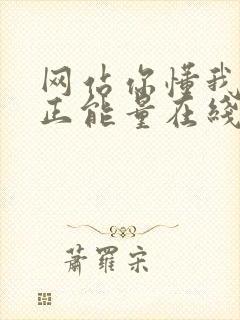 网站你懂我
正能量在线
萧罗宋